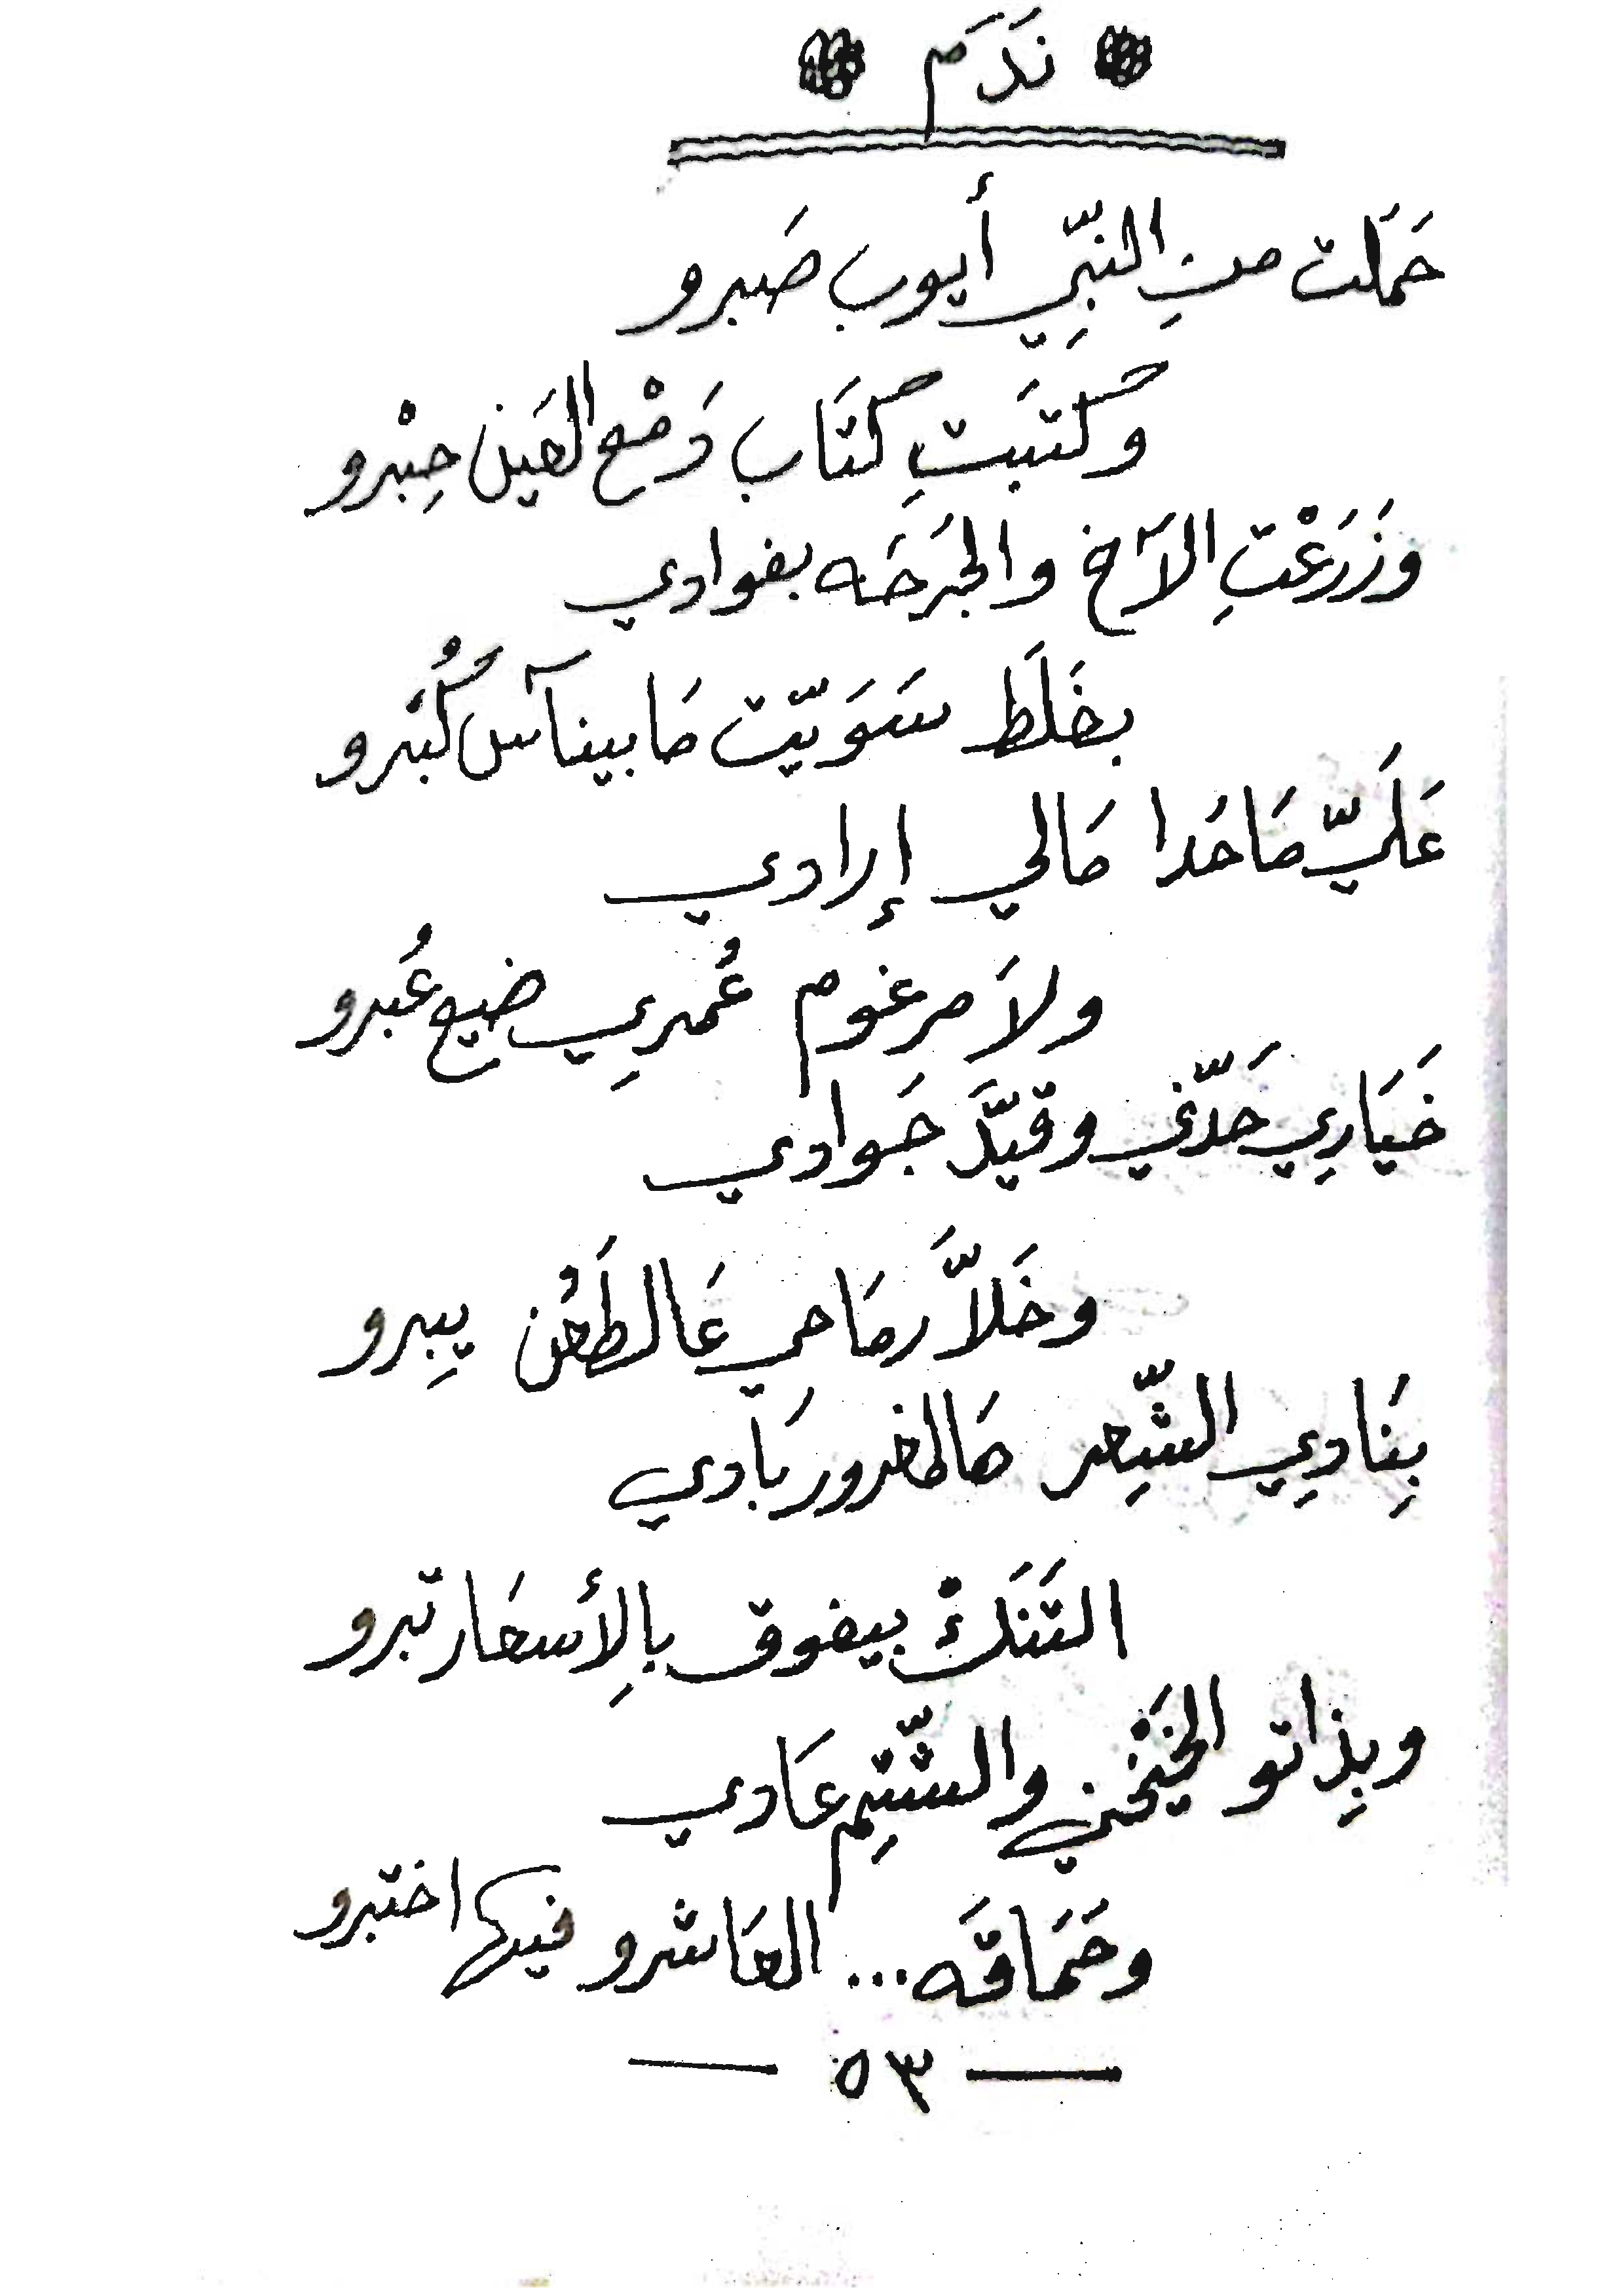 نَدَم
حَمَلت منِ النبِّي أيوب صَبرو
وكتبَتِ كتَاب دَمْع العَين حِبْرو
وزَرَعْتِ الآخ والجَرحَه بفوادي
بغَلَط سَوَيّت مَا بينآس كُبْرو
عَلَيّ مَا حَدا مَالي إرادي
ولاَ مرغوم عُمرِي ضيع عُبرو
خَيَارِي حَدّني وقيَّدَ جَوادي
وخَلاَّ رمَاحي عَالطَعُن يِبرو
بِنَادِي الشِّعر هَالمغرور بَادي
التَنَكْ بيفوق بالِأسعَار تبرو
وبِذاتو الخَيْخَني والشّتِم عَادي
وحَمَاقَه... العَاشرو فيها اختبرو
— ٥٣ —